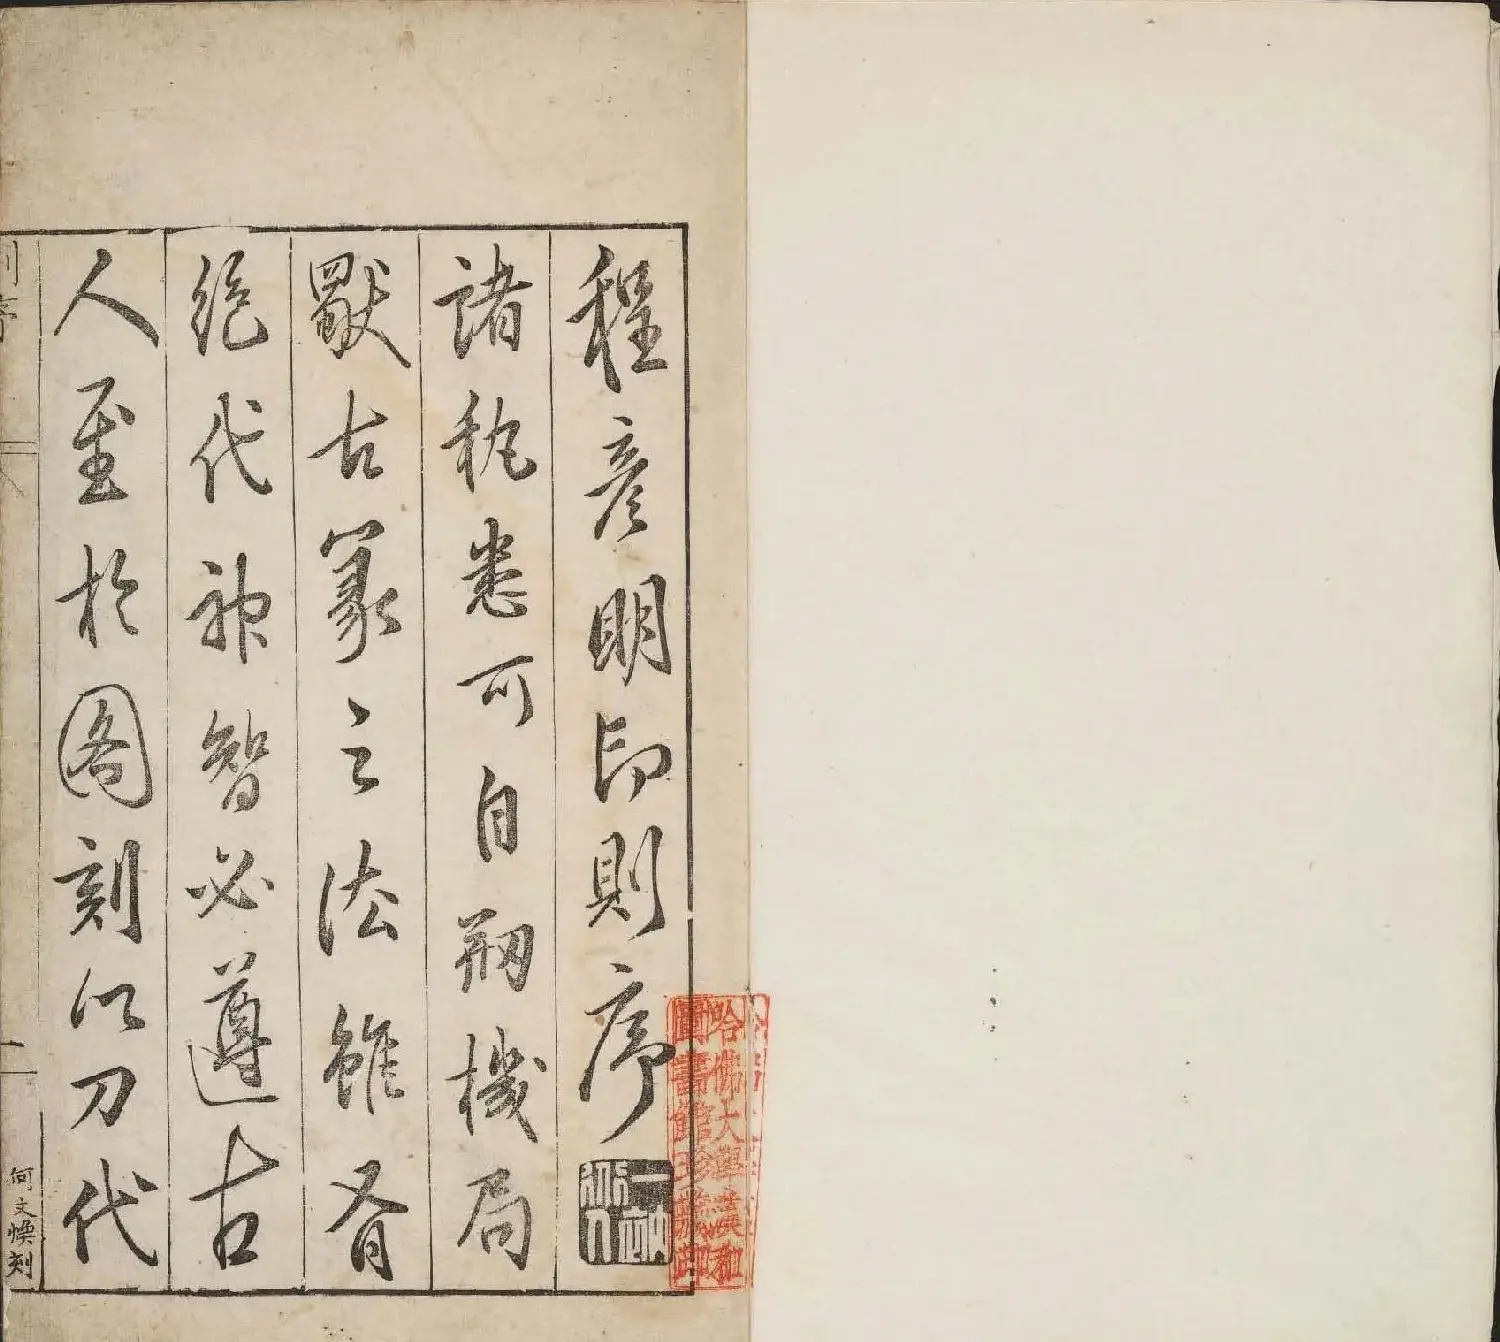 程彥明印則序
諸藝悉可自刱機局
獸古篆之法雖有
絕代神智必遵古
人至於圖刻以刀代
何文煥刻
哈佛大學漢和
圖書館珍藏印